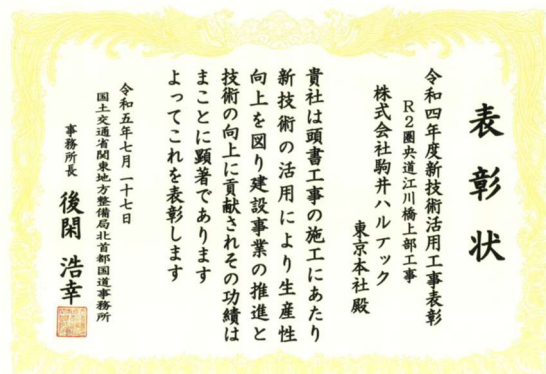 表彰状
令和四年度新技術活用工事表彰
R2圏央道江川橋上部工事
株式会社駒井ハルテック
東京本社殿
貴社は頭書工事の施工にあたり
新技術の活用により生産性
向上を図り建設事業の推進と
技術の向上に貢献されその功績は
まことに顕著であります
よってこれを表彰します
令和五年七月二十七日
国土交通省関東地方整備局北首都国道事務所
事務所長 後閑 浩幸